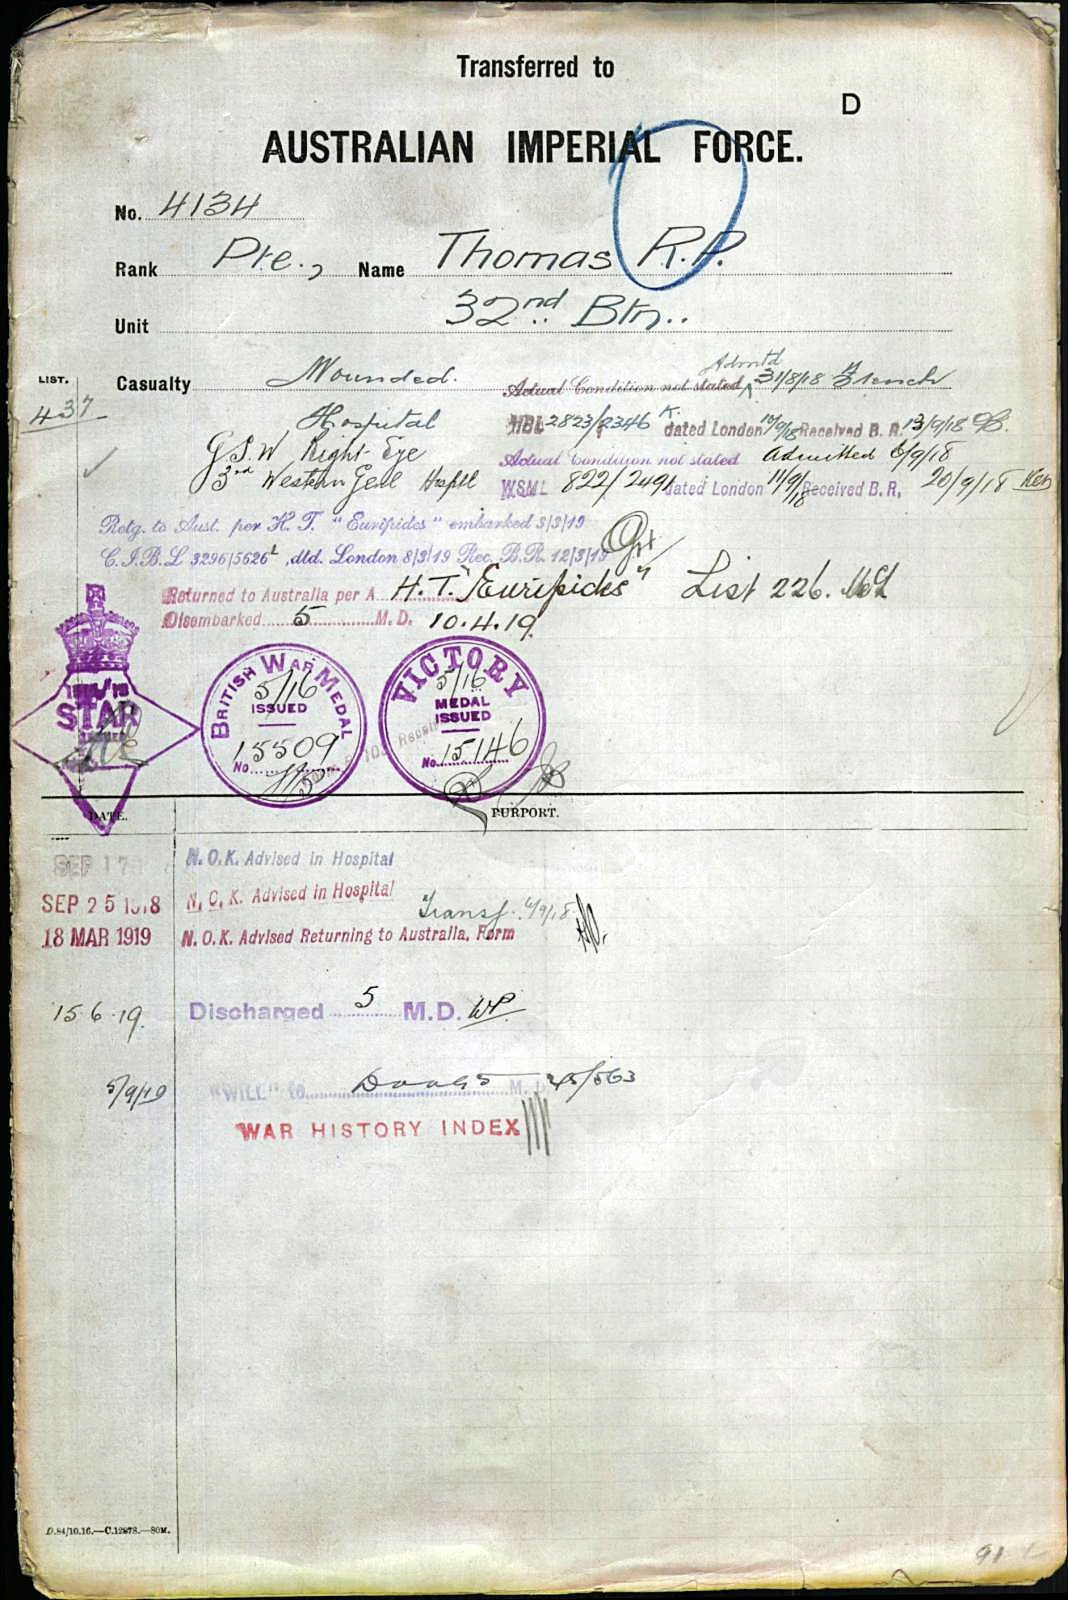 Transferred to
D
AUSTRALIAN IMPERIAL FORCE.
No. 4134
Rank Pte., Name Thomas R.P.
Unit 32nd Btn..
LIST.
Casualty Wounded. Actual Condition not stated Admtd 31/8/18
437
Hospital 2823/2346 dated London Received B. R. 13/9/18
G.S.W Right Eye Actual Condition not stated Admitted 6/9/18
3rd Western Genl Hospl WSML 822/2491 dated London 11/9/18 Received B.R, 20/9/18
Retg. to Aust. per H. T. "Euripides" embarked 3/3/19
C.I.B.L 3296/5626 , dtd. London 8/3/19 Rec. B.R. 12/3/19
Returned to Australia per A H. T. "Euripides" List 226.
Disembarked 5 M. D. 10.4.19
STAR
BRITISH WAR MEDAL
5/16
ISSUED
No. 15509
VICTORY
5/16
MEDAL
ISSUED
No. 15146
DATE. PURPORT.
SEP 17 N. O. K. Advised in Hospital
SEP 25 1918 N. O. K. Advised in Hospital Transf.
18 MAR 1919 N. O. K. Advised Returning to Australia, Form
15.6.19. Discharged 5 M.D. WP
5/9/19 "WILL" to M. D 45/563
WAR HISTORY INDEX
D.84/10.16.—C.12878.—80M.
91